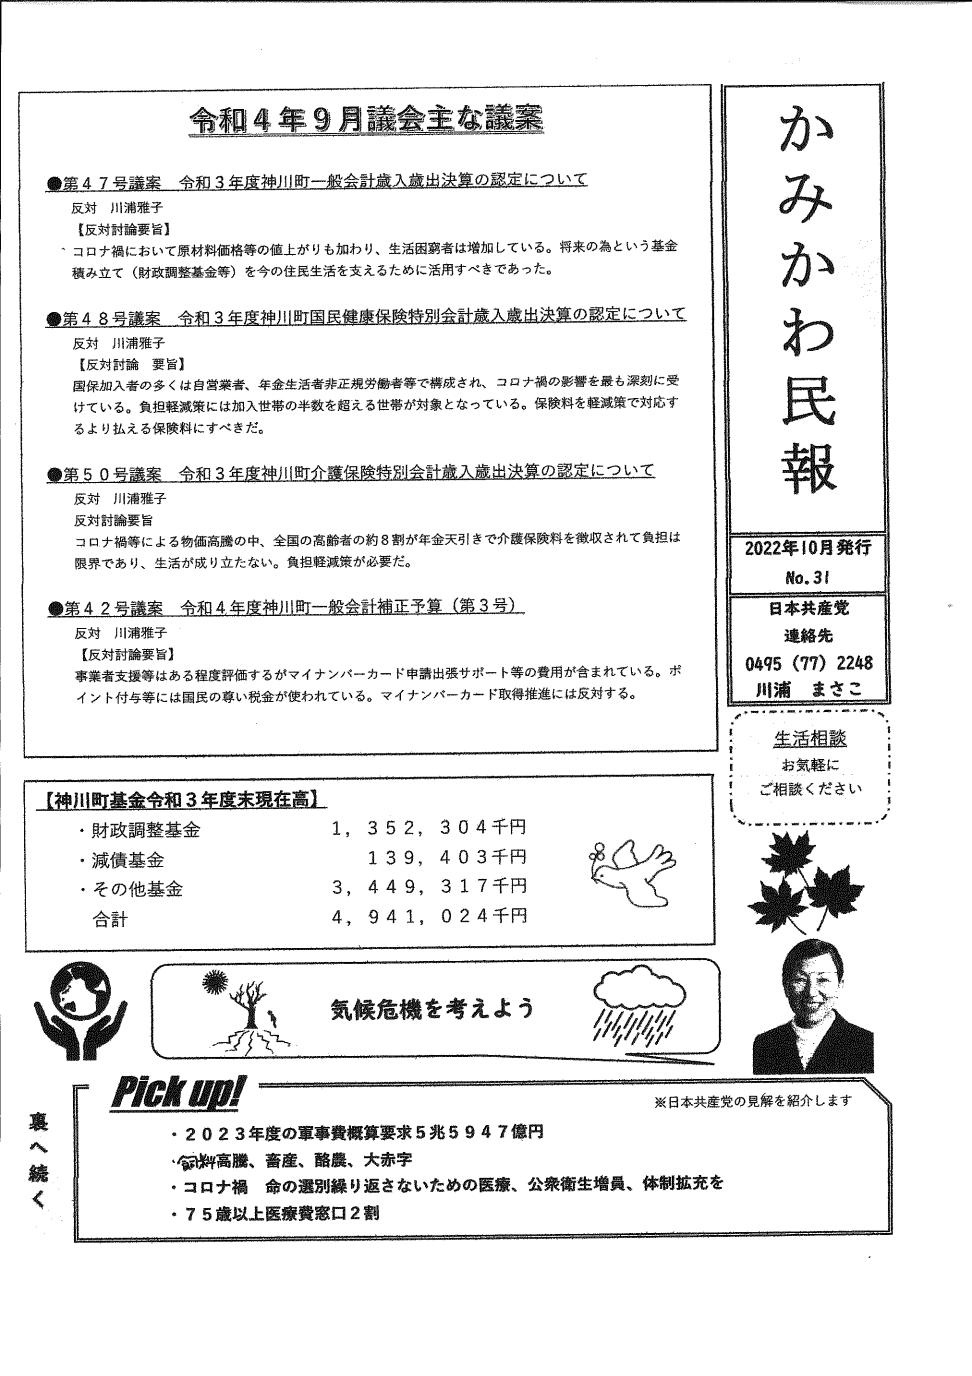 かみかわ民報
2022年10月発行
No.31
日本共産党
連絡先
0495（77）2248
川浦　まさこ
生活相談
お気軽に
ご相談ください
令和４年９月議会主な議案
●第４７号議案　令和３年度神川町一般会計歳入歳出決算の認定について
反対　川浦雅子
【反対討論要旨】
コロナ禍において原材料価格等の値上がりも加わり、生活困窮者は増加している。将来の為という基金
積み立て（財政調整基金等）を今の住民生活を支えるために活用すべきであった。
●第４８号議案　令和３年度神川町国民健康保険特別会計歳入歳出決算の認定について
反対　川浦雅子
【反対討論　要旨】
国保加入者の多くは自営業者、年金生活者非正規労働者等で構成され、コロナ禍の影響を最も深刻に受
けている。負担軽減策には加入世帯の半数を超える世帯が対象となっている。保険料を軽減策で対応す
るより払える保険料にすべきだ。
●第５０号議案　令和３年度神川町介護保険特別会計歳入歳出決算の認定について
反対　川浦雅子
反対討論要旨
コロナ禍等による物価高騰の中、全国の高齢者の約８割が年金天引きで介護保険料を徴収されて負担は
限界であり、生活が成り立たない。負担軽減策が必要だ。
●第４２号議案　令和４年度神川町一般会計補正予算（第３号）
反対　川浦雅子
【反対討論要旨】
事業者支援等はある程度評価するがマイナンバーカード申請出張サポート等の費用が含まれている。ポ
イント付与等には国民の尊い税金が使われている。マイナンバーカード取得推進には反対する。
【神川町基金令和３年度末現在高】
・財政調整基金　１，３５２，３０４千円
・減債基金　１３９，４０３千円
・その他基金　３，４４９，３１７千円
合計　４，９４１，０２４千円
気候危機を考えよう
Pick up!
※日本共産党の見解を紹介します
・２０２３年度の軍事費概算要求５兆５９４７億円
・飼料高騰、畜産、酪農、大赤字
・コロナ禍　命の選別繰り返さないための医療、公衆衛生増員、体制拡充を
・７５歳以上医療費窓口２割
裏へ続く